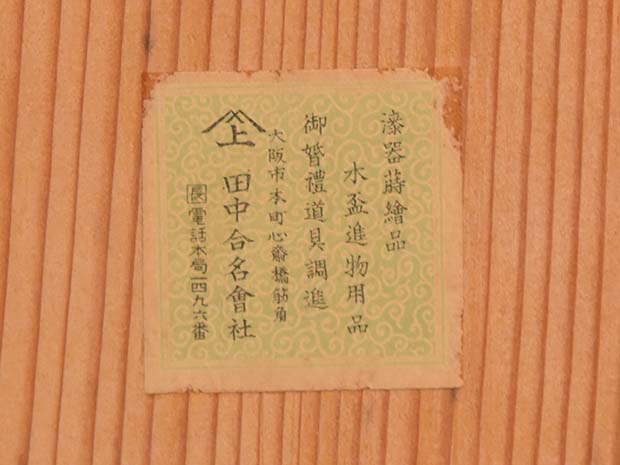 漆器蒔繪品
木盃進物用品
御婚禮道具調進
大阪市本町心齋橋筋角
上
田中合名會社
長 電話本局一四九六番